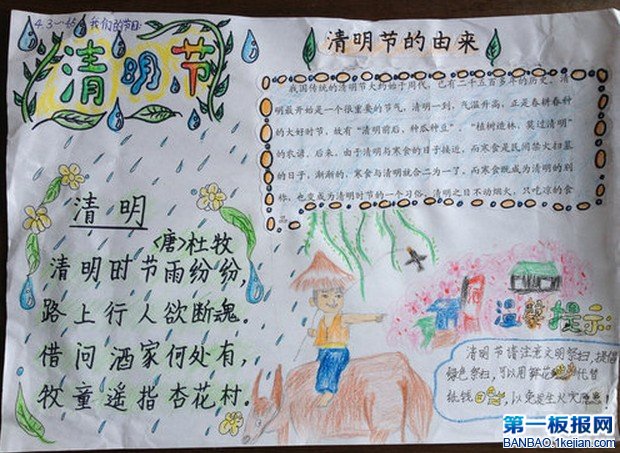 我们的节日
清明节
清明节的由来
我国传统的清明节大约始于周代，已有二千五百多年的历史。清
明最开始是一个很重要的节气，清明一到，气温升高，正是春耕春种
的大好时节，故有“清明前后，种瓜种豆”。“植树造林，莫过清明”
的农谚。后来，由于清明与寒食的日子接近，而寒食是民间禁火扫墓
的日子，渐渐的，寒食与清明就合二为一了，而寒食既成为清明的别
称，也变成为清明时节的一个习俗，清明之日不动烟火，只吃凉的食
品
清明
〈唐〉杜牧
清明时节雨纷纷，
路上行人欲断魂。
借问酒家何处有，
牧童遥指杏花村。
温馨提示：
清明节请注意文明祭扫，提倡
绿色祭扫，可以用鲜花代替
纸钱，以免发生火灾
第一板报网
BANBAO.1kejian.com